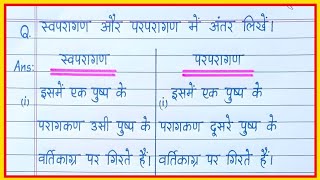 Q. स्वपरागण और परपरागण में अंतर लिखें।
Ans: स्वपरागण परपरागण
(i) इसमें एक पुष्प के (i) इसमें एक पुष्प के
परागकण उसी पुष्प के परागकण दूसरे पुष्प के
वर्तिकाग्र पर गिरते हैं। वर्तिकाग्र पर गिरते हैं।